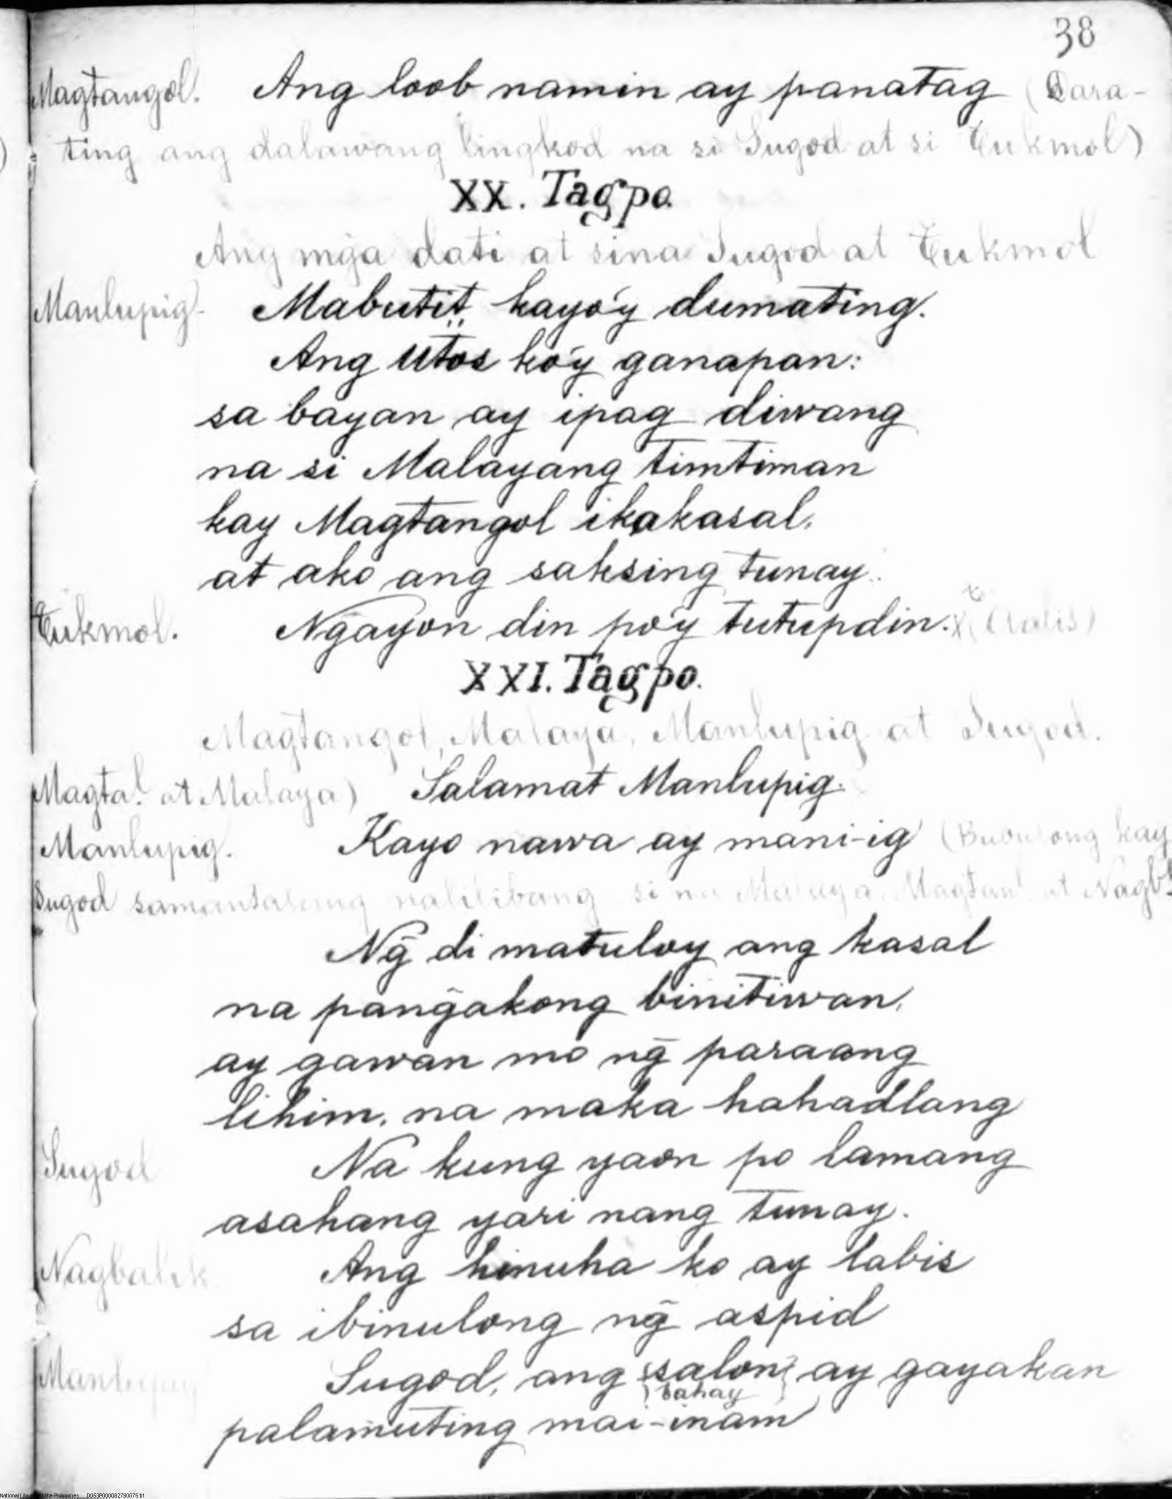 38
Magtangol. Ang loob namin ay panatag (Dara-
ting ang dalawang lingkod na si Sugod at si Tukmol)
XX. Tagpo.
Ang mg̃a dati at sina Sugod at Tukmol
Manlupig- Mabutit kayo'y dumating.
Ang utos ko'y ganapan:
sa bayan ay ipag diwang
na si Malayang timtiman
kay Magtangol ikakasal.
at ako ang saksing tunay.
Tukmol. Ng̃ayon din po'y tutupdin. (Aalis)
XXI. Tagpo.
Magtangol, Malaya, Manlupig at Sugod.
Magta! at Malaya) Salamat Manlupig.
Manlupig. Kayo nawa ay mani-ig (Bubulong kay
Sugod samantalang nalilibang si na Malaya, Magtan! at Nagb!
Ng̃ di matuloy ang kasal
na pang̃akong binitiwan,
ay gawan mo ng̃ paraang
lihim, na maka hahadlang
Sugod Na kung yaon po lamang
asahang yari nang tunay.
Nagbalik Ang hinuha ko ay labis
sa ibinulong ng̃ aspid
Manlupig Sugod, ang salon ay gayakan
bahay
palamuting mai-inam
National Library of the Philippines